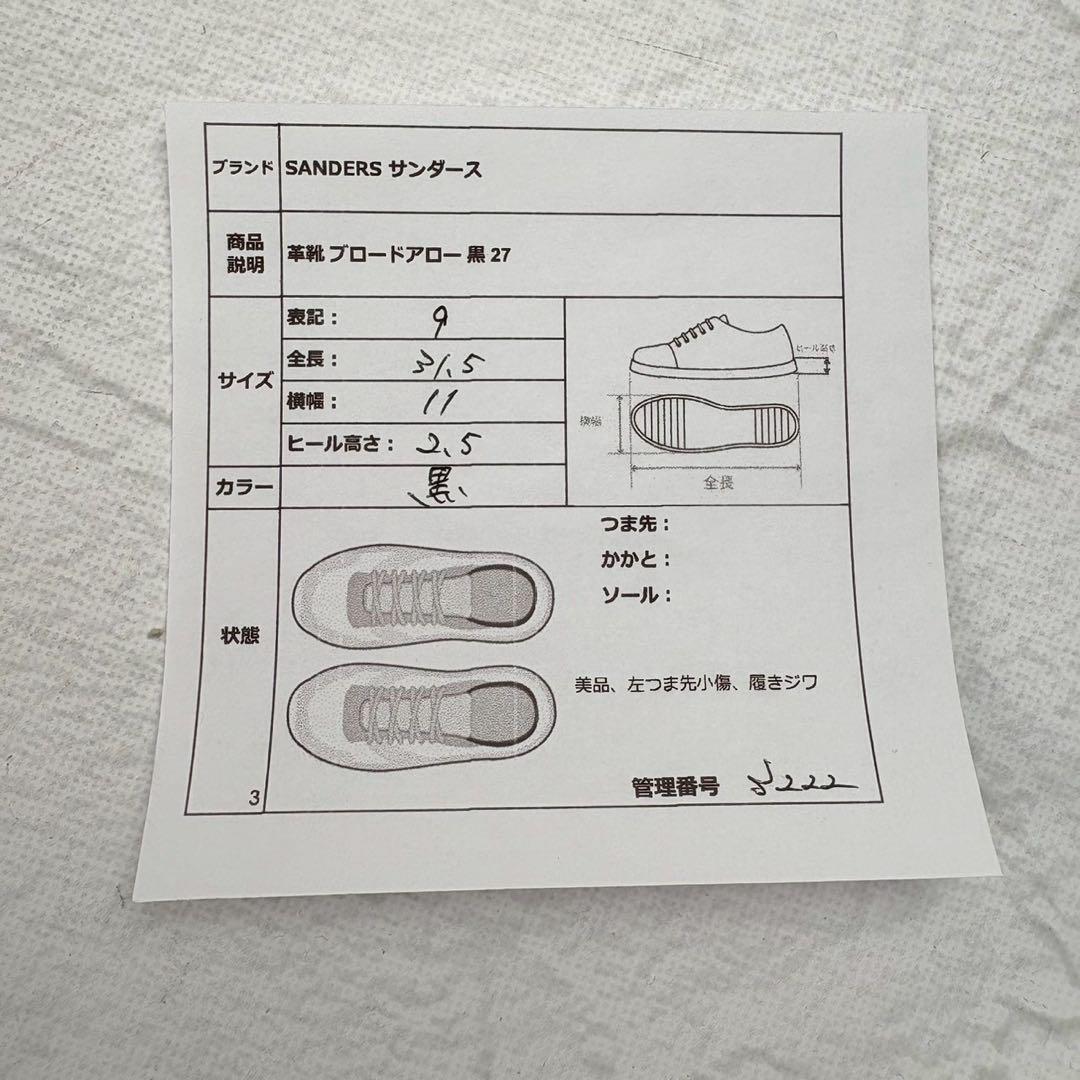 ブランド SANDERS サンダース
商品
説明
革靴 ブロードアロー 黒 27
サイズ
表記: 9
全長: 31.5
横幅: 11
ヒール高さ: 2.5
ヒール高さ
横幅
全長
カラー 黒
状態
つま先:
かかと:
ソール:
美品、左つま先小傷、履きジワ
管理番号 5222
3